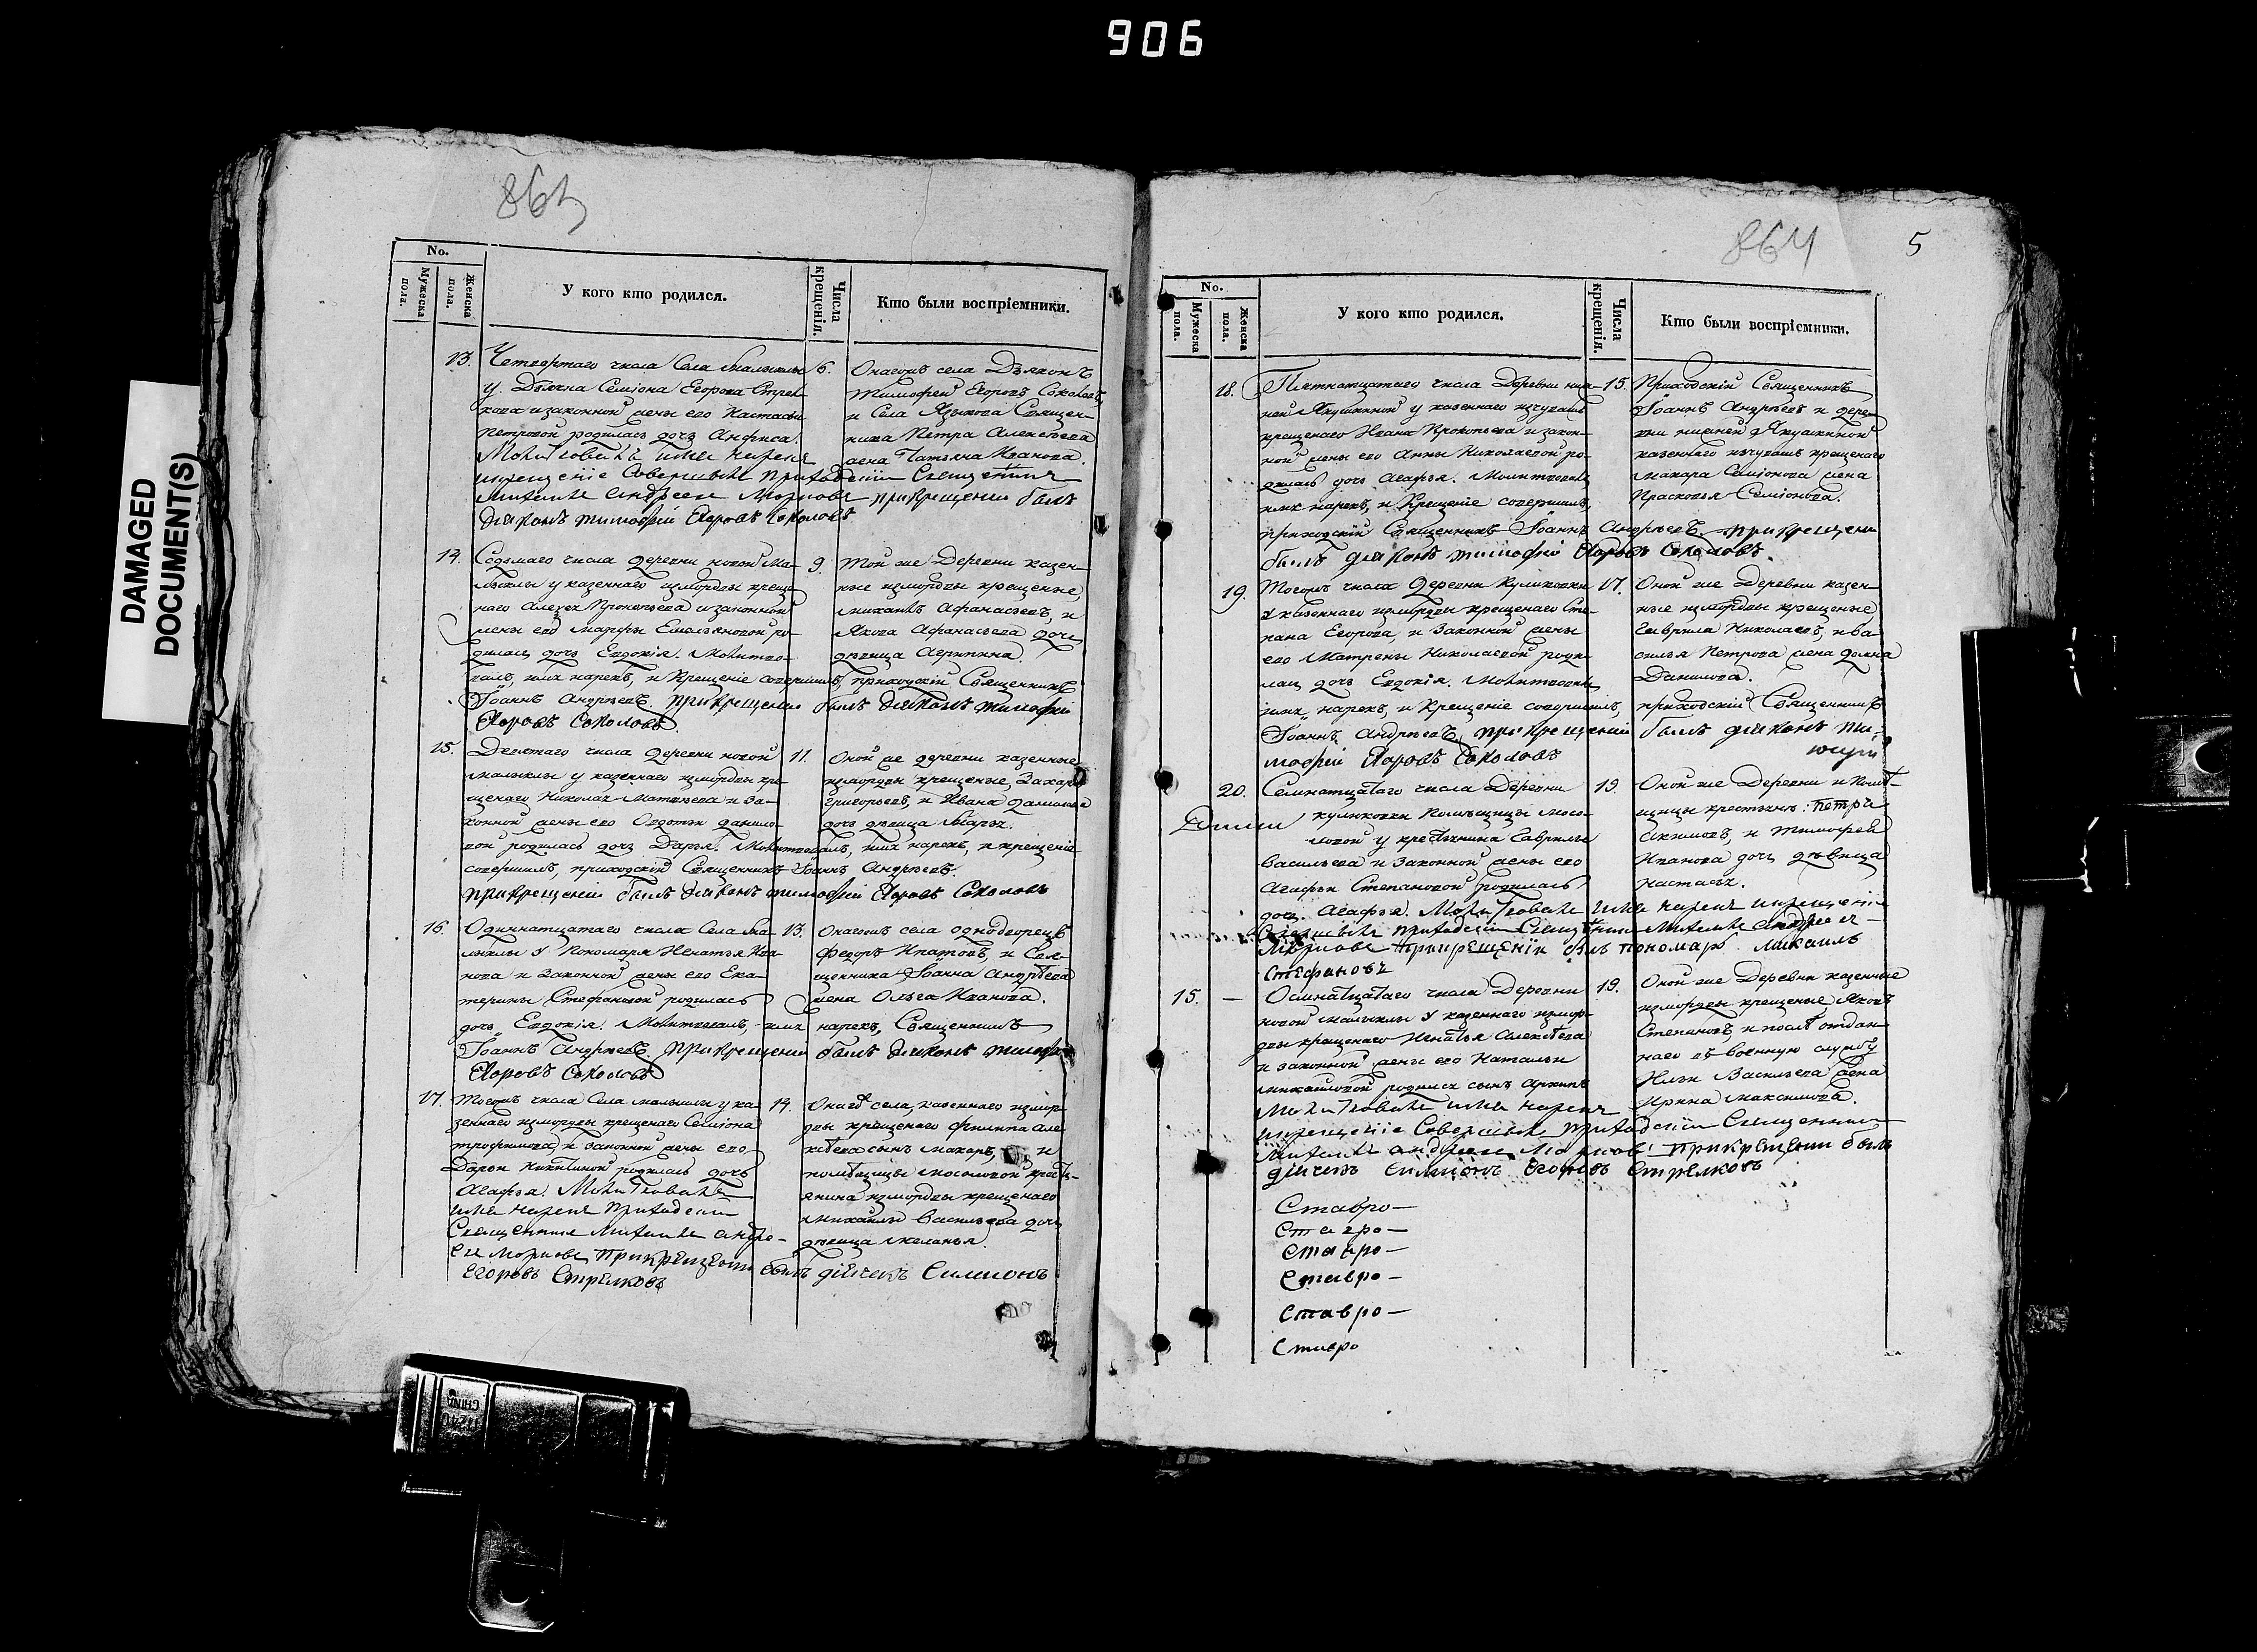 906
DAMAGED
DOCUMENT(S)
863
No.
Мужеска пола.
Женска пола.
У кого кто родился.
Числа крещенія.
Кто были воспріемники.
13.
Четвертаго числа Села Малыклы
у Дьячка Семіона Егорова Стрел-
кова и законной жены его Настасьи
Петровой родилась дочь Анфиса.
Молитвовалъ имя нарекъ
и крещеніе Совершилъ приходскій Священникъ
Михаилъ Андреевъ при крещеніи былъ
діаконъ тимофей Егоровъ Соколовъ
6.
Онагожъ села Дьяконъ
Тимофей Егоровъ Соколовъ,
и Села Языкова Священ-
ника Петра Алексѣева
жена Татьяна Иванова
14.
Седьмаго числа деревни новой Ма-
лыклы у казеннаго измордвы креще-
наго Алексея Прокофьева и законной
жены его Марфы Емельяновой ро-
дилась дочь Евдокія. Молитво-
валъ, имя нарекъ, и Крещеніе совершилъ, приходскій Священникъ
Іоаннъ Андреевъ. при крещеніи былъ діаконъ тимофей
Егоровъ Соколовъ
9.
Той же Деревни казен-
ные измордвы крещеные,
михаилъ Афанасьевъ, и
Якова Афанасьева дочь
дѣвица Агрипина.
15.
Девятаго числа деревни новой
малыклы у казеннаго измордвы кре-
щенаго Николая Матвеева и за-
конной жены его Овдотьи данило-
вой родилась дочь Дарья. Молитвовалъ, имя нарекъ, и крещеніе
совершилъ, приходскій Священникъ Іоаннъ Андреевъ.
при крещеніи былъ діаконъ тимофей Егоровъ Соколовъ
11.
Оной же деревни казенные
измордвы крещеные, Захаръ
григорьевъ, и Ивана данилова
дочь дѣвица Марья.
16.
Одиннатцатаго числа Села Ма-
лыклы у Пономаря Игнатья Ива-
нова и законной жены его Ека-
терины Стефановой родилась
дочь Евдокія. Молитвовалъ, имя нарекъ, Священникъ
Іоаннъ Андреевъ. при крещеніи былъ діаконъ тимофей
Егоровъ Соколовъ
13.
Онагожъ села однодворецъ
Федоръ Ипатовъ, и Свя-
щенника Іоанна Андрѣева
жена Ольга Иванова.
17.
Тогожъ числа Села малыклы у ка-
зеннаго измордвы крещенаго Семіона
трофимова, и законной жены его
Дарьи Никитиной родилась дочь
Агафья. Молитвовалъ
имя нарекъ приходскій
Священникъ Михаилъ Андре-
евъ при крещеніи былъ дьячекъ Симионъ
Егоровъ Стрелковъ
14.
Онагожъ села, казеннаго измор-
двы крещенаго Филипа Але-
ксѣева сынъ макаръ, и
помѣщицы Мосоловой крестья-
янина измордвы крещенаго
михайлы Васильева дочь
дѣвица меланья.
864
5
No.
Мужеска пола.
Женска пола.
У кого кто родился.
Числа крещенія.
Кто были воспріемники.
18.
Пятнатцатаго числа Деревни ниж-
ней Якушкиной у казеннаго изчувашъ
крещенаго Ивана Прокопьева и закон-
ной жены его Анны Николаевой ро-
дилась дочь Агафья. Молитвовалъ,
имя нарекъ, и Крещеніе совершилъ,
приходскій Священникъ Іоаннъ Андреевъ. при крещеніи
былъ діаконъ тимофей Егоровъ Соколовъ.
15.
Приходскій Священникъ
Іоаннъ Андрѣевъ и дере-
вни нижней Якушкиной
казеннаго изчувашъ крещенаго
макара Семіонова жена
Прасковья Семіонова.
19.
Тогожъ числа деревни Куликовки
у казеннаго измордвы крещенаго Сте-
пана Егорова, и законной жены
его Матрены Николаевой роди-
лась дочь Евдокія. Молитвовалъ
имя нарекъ, и Крещеніе совершилъ, приходскій Священникъ
Іоаннъ Андрѣевъ, при крещеніи былъ діаконъ ти-
мофей Егоровъ Соколовъ
17.
Оной же Деревни казен-
ные измордвы крещеные
Гаврила Николаевъ, и ва-
силья Петрова жена домна
Данилова.
20.
Семнатцатаго числа Деревни
куликовки Помѣщицы Мосо-
ловой у крестьянина Гаврилы
Васильева и законной жены его
Агафьи Степановой родилась
дочь Агафья. Молитвовалъ имя нарекъ и крещеніе
Совершилъ приходскій Священникъ Михаилъ Андреевъ
при крещеніи былъ пономарь михаилъ
Стефановъ
19.
Оной же Деревни и Помѣ-
щицы крестьянъ: Петръ
Акимовъ, и тимофея
Иванова дочь дѣвица
Настасья.
15. —
Осмнатцатаго числа Деревни
новой малыклы у казеннаго измор-
двы крещенаго Игнатья Алексѣева
и законной жены его Натальи
михайловой родился сынъ Архипъ
Молитвовалъ имя нарекъ
и крещеніе Совершилъ приходскій Священникъ
Михаилъ Андреевъ при крещеніи былъ
дьячекъ Симионъ Егоровъ Стрелковъ
19.
Оной же Деревни казенные
измордвы крещеные Яковъ
Степановъ, и послѣ отдан-
наго въ военную службу
Ильи Васильева жена
Ирина Максимова.
Ставро—
Ставро—
Ставро—
Ставро—
Ставро—
Ставро